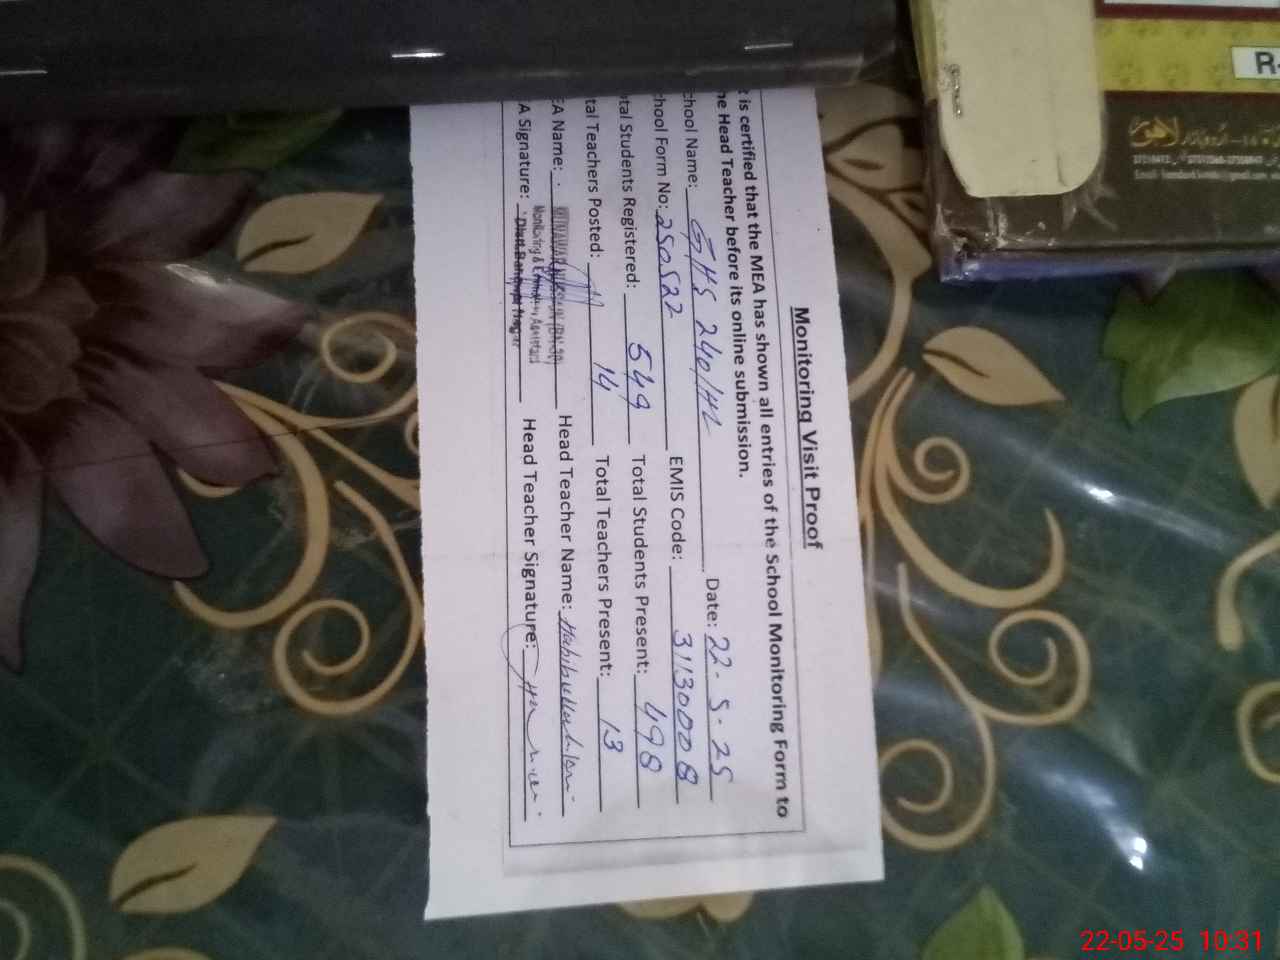 Monitoring Visit Proof
t is certified that the MEA has shown all entries of the School Monitoring Form to
he Head Teacher before its online submission.
chool Name: GHS 240/HL Date: 22.5.25
chool Form No: 250522 EMIS Code: 31130008
tal Students Registered: 549 Total Students Present: 498
tal Teachers Posted: 14 Total Teachers Present: 13
EA Name: Head Teacher Name:
Monitoring &
A Signature: Distt. Head Teacher Signature:
R-
لاہور
22-05-25 10:31